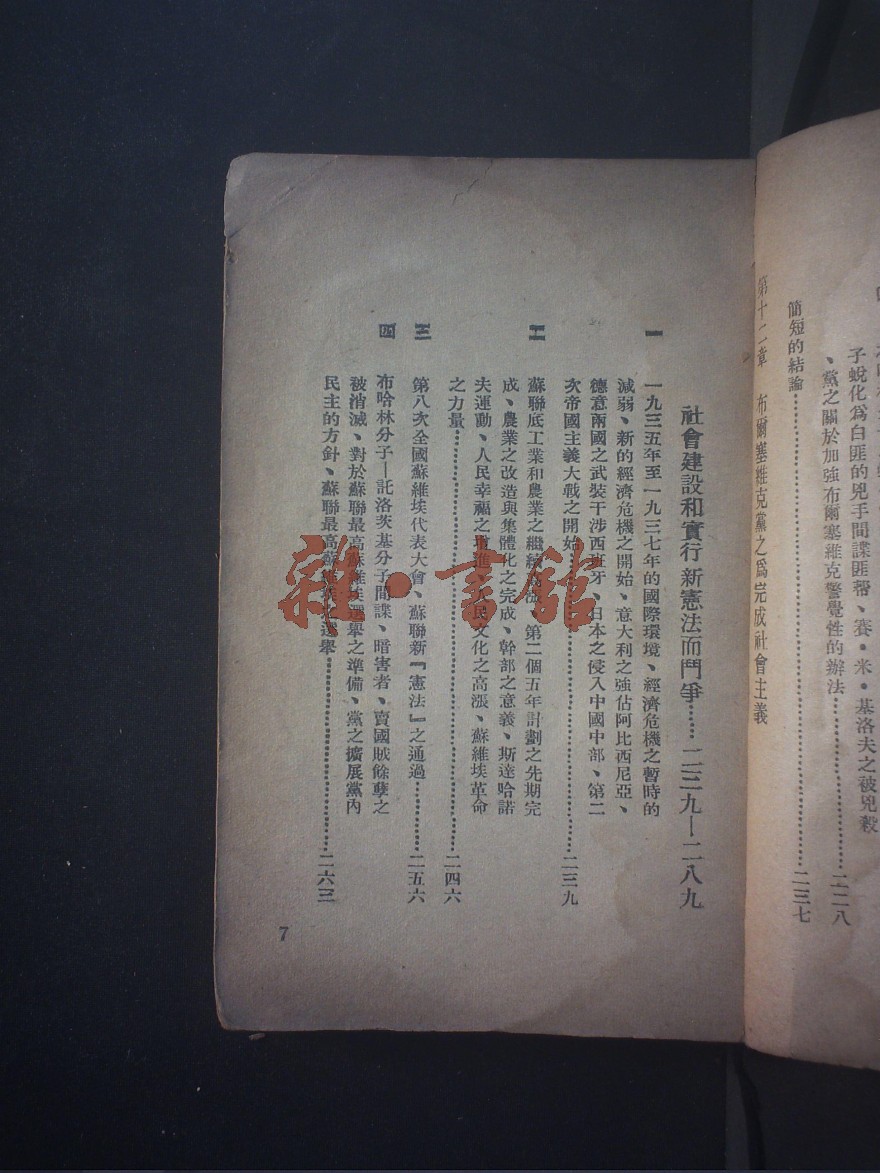 子蛻化爲白匪的兇手間諜匪幫、賽•米•基洛夫之被兇殺
、黨之關於加強布爾塞維克警覺性的辦法……二二八
簡短的結論……二三七
第十二章　布爾塞維克黨之爲完成社會主義
社會建設和實行新憲法而鬥爭……二三九—二八九
一　一九三五年至一九三七年的國際環境、經濟危機之暫時的
減弱、新的經濟危機之開始、意大利之強佔阿比西尼亞、
德意兩國之武裝干涉西班牙、日本之侵入中國中部、第二
次帝國主義大戰之開始……二三九
二　蘇聯底工業和農業之繼續　第二個五年計劃之先期完
成、農業之改造與集體化之完成、幹部之意義、斯達哈諾
夫運動、人民幸福之增進、人民文化之高漲、蘇維埃革命
之力量……二四六
三　第八次全國蘇維埃代表大會、蘇聯新『憲法』之通過……二五六
四　布哈林分子—託洛茨基分子間諜、暗害者、賣國賊餘孽之
被消滅、對於蘇聯最高蘇維埃選舉之準備、黨之擴展黨內
民主的方針、蘇聯最高蘇維埃之選舉……二六三
7
雜•書館